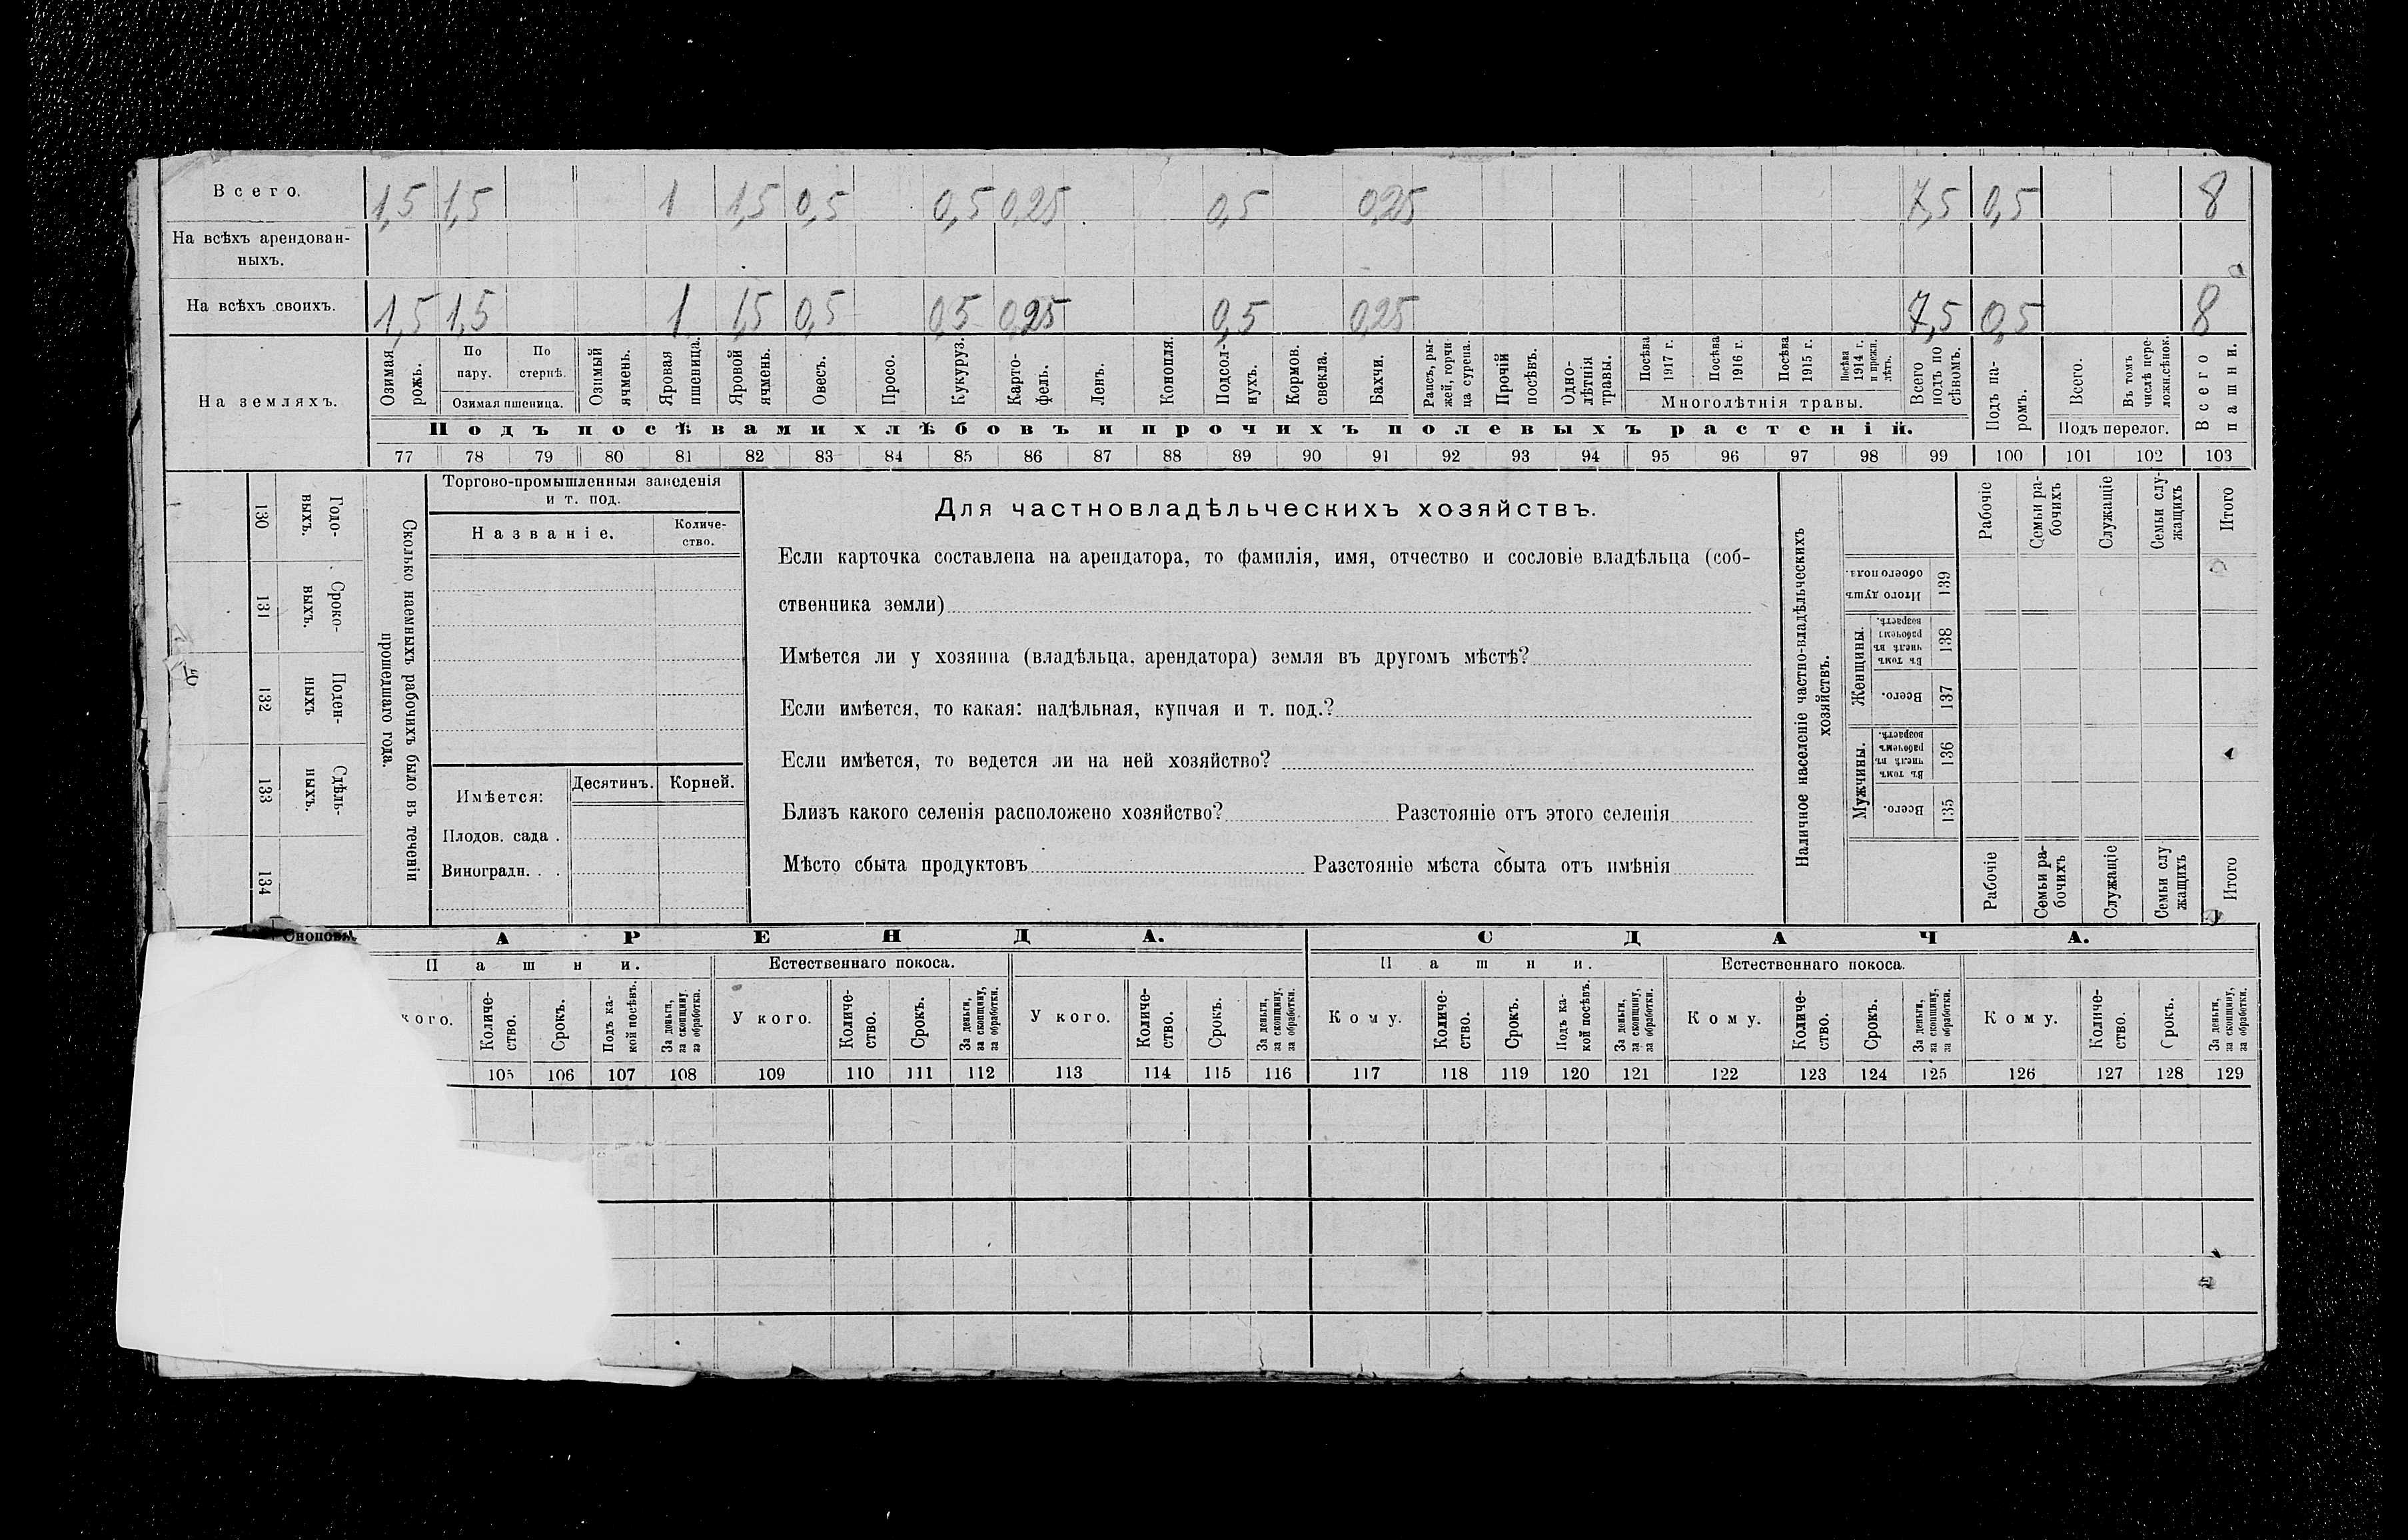 Всего. 1,5 1,5 1 1,5 0,5 0,5 0,25 0,5 0,25 7,5 0,5 8
На всѣхъ арендован-
ныхъ.
На всѣхъ своихъ. 1,5 1,5 1 1,5 0,5 0,5 0,25 0,5 0,25 7,5 0,5 8
На земляхъ.
Озимая рожь.
По пару.
По стернѣ.
Озимая пшеница.
Озимый ячмень.
Яровая пшеница.
Яровой ячмень.
Овесъ.
Просо.
Кукуруз.
Карто-
фель.
Ленъ.
Конопля.
Подсол-
нухъ.
Кормов. свекла.
Бахчи.
Рапсъ, ры-
жей, горчи-
ца сурепа.
Прочій посѣвъ.
Одно-
лѣтнія травы.
Посѣва 1917 г.
Посѣва 1916 г.
Посѣва 1915 г.
Посѣва 1914 г. и прежн. лѣтъ.
Многолѣтнія травы.
Всего подъ по
сѣвомъ.
Подъ посѣвами хлѣбовъ и прочихъ полевыхъ растеній.
Подъ па-
ромъ.
Всего.
Въ томъ числѣ пере-
ложн.сѣнок.
Подъ перелог.
Всего пашни.
77 78 79 80 81 82 83 84 85 86 87 88 89 90 91 92 93 94 95 96 97 98 99 100 101 102 103
130 Годо-
ныхъ.
131 Сроко-
ныхъ.
132 Поден-
ныхъ
133 Сдѣль-
ныхъ.
134
Сколько наемныхъ рабочихъ было въ теченіи
прошедшаго года.
Торгово-промышленныя заведенія
и т. под.
Названіе.
Количе-
ство.
Имѣется:
Десятинъ. Корней.
Плодов. сада .
Виноградн. . .
Для частновладѣльческихъ хозяйствъ.
Если карточка составлена на арендатора, то фамилія, имя, отчество и сословіе владѣльца (соб-
ственника земли)
Имѣется ли у хозяина (владѣльца, арендатора) земля въ другомъ мѣстѣ?
Если имѣется, то какая: надѣльная, купчая и т. под.?
Если имѣется, то ведется ли на ней хозяйство?
Близъ какого селенія расположено хозяйство? Разстояніе отъ этого селенія
Мѣсто сбыта продуктовъ Разстояніе мѣста сбыта отъ имѣнія
Наличное населеніе частно-владѣльческихъ
хозяйствъ.
Итого душъ обоего пола. 139
Женщины.
Въ томъ числѣ въ рабочемъ возрастѣ. 138
Всего. 137
Мужчины.
Въ томъ числѣ въ рабочемъ возрастѣ. 136
Всего. 135
Рабочіе
Семьи ра-
бочихъ
Служащіе
Семьи слу-
жащихъ
Итого
Рабочіе
Семьи ра-
бочихъ
Служащіе
Семьи слу
жащихъ
Итого
Сноповъ.
АРЕНДА. СДАЧА.
Пашни. Естественнаго покоса. Пашни. Естественнаго покоса.
кого.
Количе-
ство.
Срокъ.
Подъ ка-
кой посѣвъ.
За деньги,
за скопщину,
за обработки.
У кого.
Количе-
ство.
Срокъ.
За деньги,
за скопщину,
за обработки.
У кого.
Количе-
ство.
Срокъ.
За деньги,
за скопщину,
за обработки.
Кому.
Количе-
ство.
Срокъ.
Подъ ка-
кой посѣвъ.
За деньги,
за скопщину,
за обработки.
Кому.
Количе-
ство.
Срокъ.
За деньги,
за скопщину,
за обработки.
Кому.
Количе-
ство.
Срокъ.
За деньги,
за скопщину,
за обработки.
105 106 107 108 109 110 111 112 113 114 115 116 117 118 119 120 121 122 123 124 125 126 127 128 129